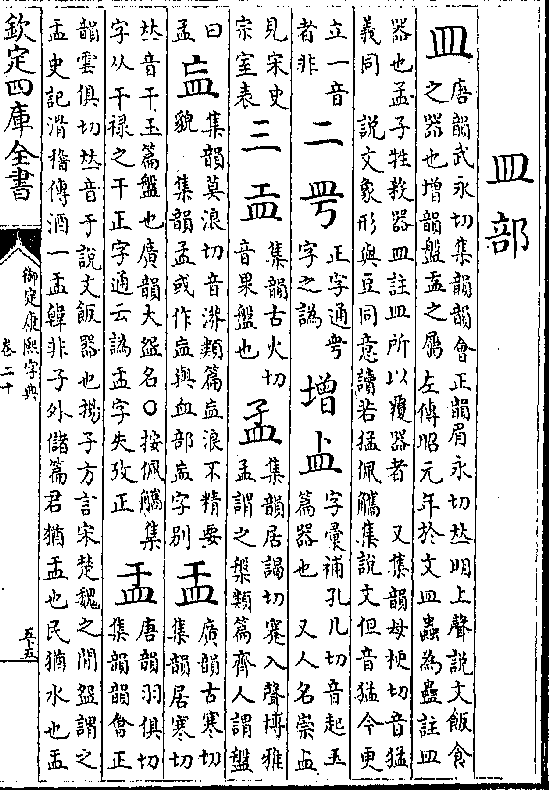 皿部
皿
唐韻武永切集韻韻會正韻眉永切𠀤明上聲說文飯食
之器也增韻盤盂之屬左傳昭元年於文皿蟲為蠱註皿
器也孟子牲殺器皿註皿所以覆器者 又集韻母梗切音猛
義同 說文象形與豆同意讀若猛佩觿集說文但音猛今更
立一音
者非
二
正字通咢
字之譌
增
字彙補孔几切音起玉
篇器也 又人名崇
見宋史
宗室表
三
集韻古火切
音果盤也
集韻居謁切蹇入聲博雅
盂謂之槃類篇齊人謂盤
曰
盂
集韻莫浪切音漭類篇浪不精要
貌 集韻孟或作與血部衁字別
廣韻古寒切
集韻居寒切
𠀤音干玉篇盤也廣韻大盌名〇按佩觿集
字从干祿之干正字通云譌盂字失攷正
盂
唐韻羽俱切
集韻韻會正
韻雲俱切𠀤音于說文飯器也揚子方言宋楚魏之間盌謂之
盂史記滑稽傳酒一盂韓非子外儲篇君猶盂也民猶水也盂
欽定四庫全書
御定康熙字典
卷二十
五十五